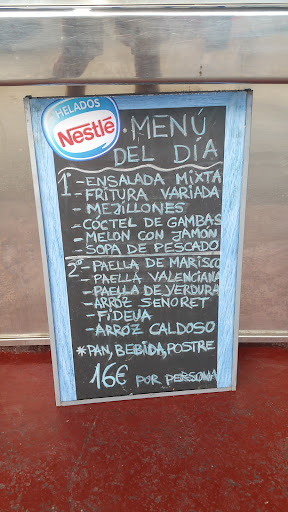 HELADOS
Nestlé
·MENÚ
DEL DÍA
1º-ENSALADA MIXTA
-FRITURA VARIADA
-MEJILLONES
-CÓCTEL DE GAMBAS
-MELON CON JAMÓN
-SOPA DE PESCADO
2º-PAELLA DE MARISCO
-PAELLA VALENCIANA
-PAELLA DE VERDURA
-ARRÓZ SENORET
-FIDEUA
-ARRÓZ CALDOSO
*PAN, BEBIDA, POSTRE
16€ POR PERSONA